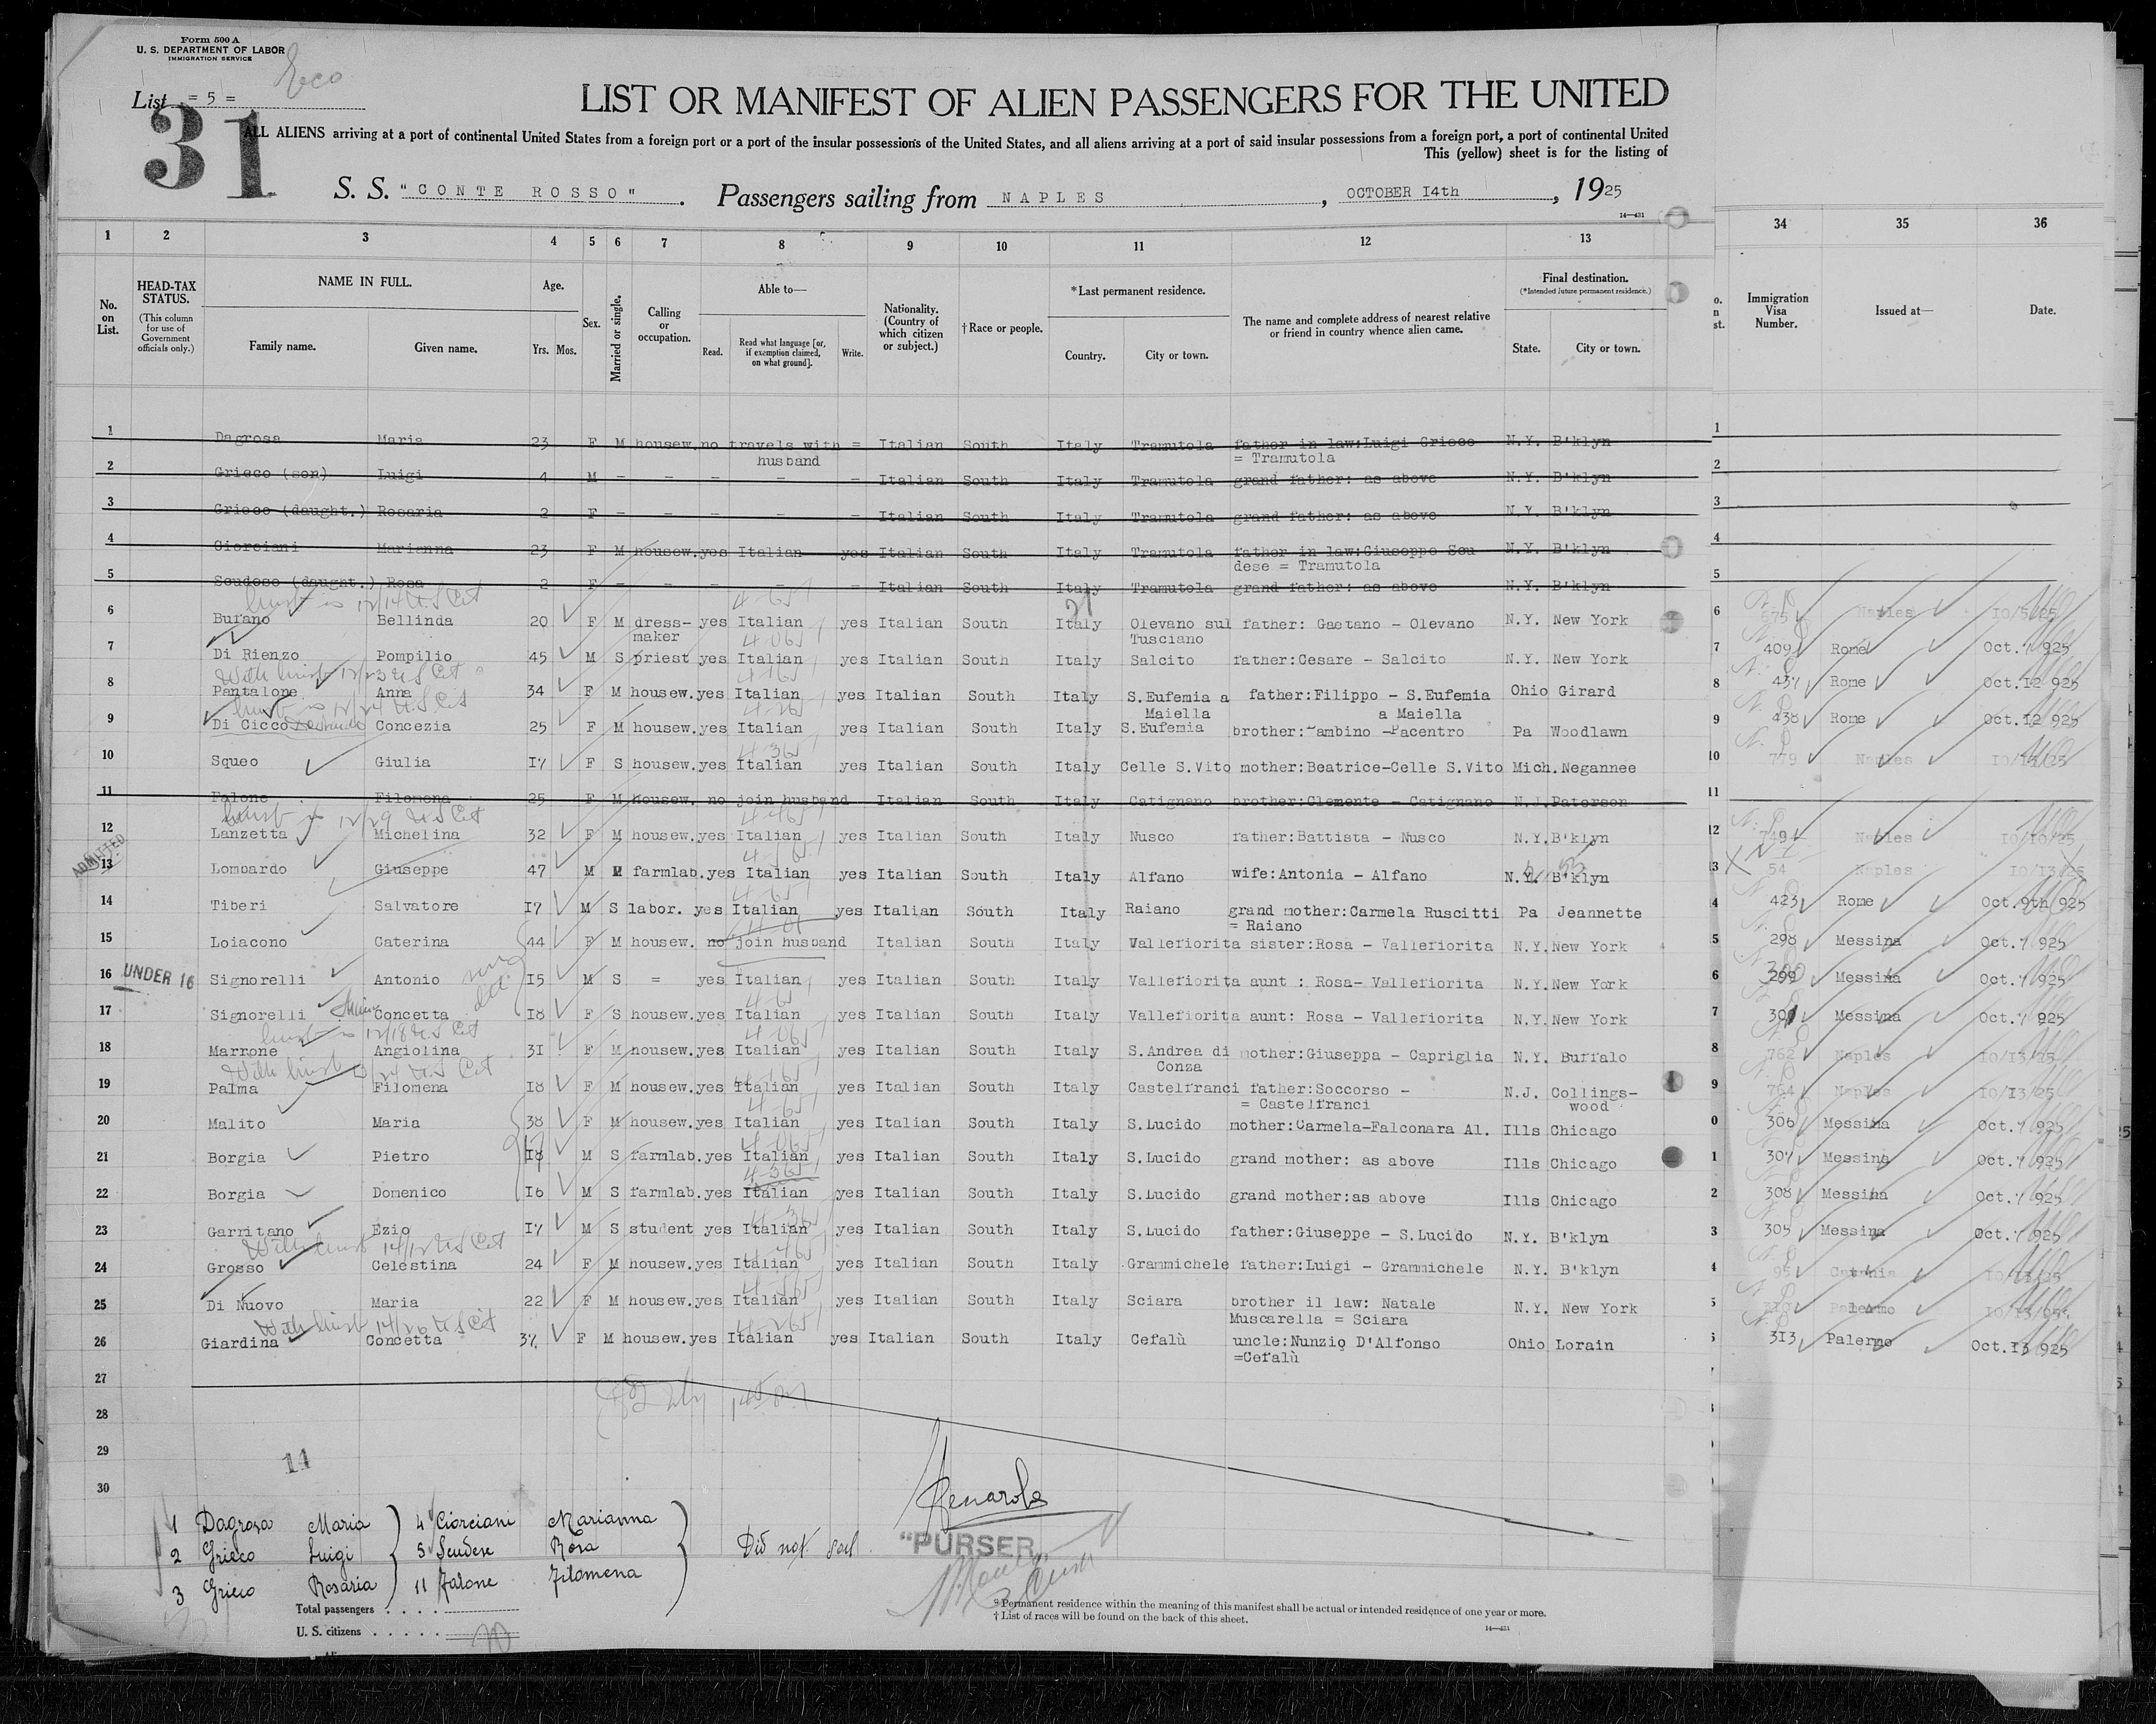 Form 500 A
U. S. DEPARTMENT OF LABOR
IMMIGRATION SERVICE
List = 5 =
31
LIST OR MANIFEST OF ALIEN PASSENGERS FOR THE UNITED
ALL ALIENS arriving at a port of continental United States from a foreign port or a port of the insular possessions of the United States, and all aliens arriving at a port of said insular possessions from a foreign port, a port of continental United
This (yellow) sheet is for the listing of
S. S. "CONTE ROSSO". Passengers sailing from NAPLES, OCTOBER I4th, 1925
14—431
1 2 3 4 5 6 7 8 9 10 11 12 13 34 35 36
No. on List.
HEAD-TAX STATUS.
(This column for use of Government officials only.)
NAME IN FULL.
Family name. Given name.
Age.
Yrs. Mos.
Sex.
Married or single.
Calling or occupation.
Able to—
Read. Read what language [or, if exemption claimed, on what ground]. Write.
Nationality. (Country of which citizen or subject.)
†Race or people.
*Last permanent residence.
Country. City or town.
The name and complete address of nearest relative or friend in country whence alien came.
Final destination.
(*Intended future permanent residence.)
State. City or town.
Immigration Visa Number.
Issued at—
Date.
1 Dagrosa Maria 23 F M housew. no travels with = Italian South Italy Tramutola father in law:Luigi Grieco N.Y. B'klyn 1
husband = Tramutola
2 Grieco (son) Luigi 4 M - - - - - Italian South Italy Tramutola grand father: as above N.Y. B'klyn 2
3 Grieco (daught.) Rosaria 2 F - - - - - Italian South Italy Tramutola grand father: as above N.Y. B'klyn 3
4 Ciorciani Marianna 23 F M housew. yes Italian yes Italian South Italy Tramutola father in law:Giuseppe Scu N.Y. B'klyn 4
dese = Tramutola
5 Scudese (daught.) Rosa 2 F - - - - - Italian South Italy Tramutola grand father: as above N.Y. B'klyn 5
6 Bufano Bellinda 20 F M dress- yes Italian yes Italian South Italy Olevano sul father: Gaetano - Olevano N.Y. New York 6 675 Naples IO/5/25
maker Tusciano
7 Di Rienzo Pompilio 45 M S priest yes Italian yes Italian South Italy Salcito father:Cesare - Salcito N.Y. New York 7 409 Rome Oct.7 925
8 Pantalone Anna 34 F M housew. yes Italian yes Italian South Italy S.Eufemia a father:Filippo - S.Eufemia Ohio Girard 8 437 Rome Oct.I2 925
Maiella a Maiella
9 Di Cicco Concezia 25 F M housew. yes Italian yes Italian South Italy S.Eufemia brother: ambino -Pacentro Pa Woodlawn 9 438 Rome Oct.I2 925
10 Squeo Giulia I7 F S housew. yes Italian yes Italian South Italy Celle S.Vito mother:Beatrice-Celle S.Vito Mich. Negannee 10 779 Naples
11 Falone Filomena 25 F M housew. no join husband Italian South Italy Catignano brother:Clemente - Catignano N.J. Paterson 11
12 Lanzetta Michelina 32 F M housew. yes Italian yes Italian South Italy Nusco father:Battista - Nusco N.Y. B'klyn 12 749 Naples IO/IO/25
ADMITTED
13 Lombardo Giuseppe 47 M M farmlab. yes Italian yes Italian South Italy Alfano wife:Antonia - Alfano N.Y. B'klyn 3 54 Naples IO/I3/25
14 Tiberi Salvatore I7 M S labor. yes Italian yes Italian South Italy Raiano grand mother:Carmela Ruscitti Pa Jeannette 4 423 Rome Oct.9th 925
= Raiano
15 Loiacono Caterina 44 F M housew. no join husband Italian South Italy Vallefiorita sister:Rosa - Vallefiorita N.Y. New York 5 298 Messina Oct.7 925
16 UNDER 16 Signorelli Antonio I5 M S = yes Italian yes Italian South Italy Vallefiorita aunt : Rosa- Vallefiorita N.Y. New York 6 299 Messina Oct.7 925
17 Signorelli Concetta I8 F S housew. yes Italian yes Italian South Italy Vallefiorita aunt: Rosa - Vallefiorita N.Y. New York 7 Messina Oct.7 925
18 Marrone Angiolina 3I F M housew. yes Italian yes Italian South Italy S.Andrea di mother:Giuseppa - Capriglia N.Y. Buffalo 8 762 Naples IO/I3/25
Conza
19 Palma Filomena I8 F M housew. yes Italian yes Italian South Italy Castelfranci father:Soccorso - N.J. Collings- 9 764 Naples IO/I3/25
= Castelfranci wood
20 Malito Maria 38 F M housew. yes Italian yes Italian South Italy S.Lucido mother:Carmela-Falconara Al. Ills Chicago 0 306 Messina Oct.7 925
21 Borgia Pietro I8 M S farmlab. yes Italian yes Italian South Italy S.Lucido grand mother: as above Ills Chicago 1 307 Messina Oct.7 925
22 Borgia Domenico I6 M S farmlab. yes Italian yes Italian South Italy S.Lucido grand mother:as above Ills Chicago 2 308 Messina Oct.7 925
23 Garritano Ezio I7 M S student yes Italian yes Italian South Italy S.Lucido father:Giuseppe - S.Lucido N.Y. B'klyn 3 305 Messina Oct.7 925
24 Grosso Celestina 24 F M housew. yes Italian yes Italian South Italy Grammichele father:Luigi - Grammichele N.Y. B'klyn 4 95 Catania
25 Di Nuovo Maria 22 F M housew. yes Italian yes Italian South Italy Sciara brother il law: Natale N.Y. New York 5 Palermo IO/I3/25
Muscarella = Sciara
26 Giardina Concetta 37 F M housew. yes Italian yes Italian South Italy Cefalù uncle:Nunzio D'Alfonso Ohio Lorain 313 Palermo Oct.I3 925
=Cefalù
27
28
29
30
11
1 Dagrosa Maria 4 Ciorciani Marianna
2 Grieco Luigi 5 Scudese Rosa Did not sail
3 Grieco Rosaria 11 Falone Filomena
"PURSER
Total passengers . . . .
U. S. citizens . . . . .
* Permanent residence within the meaning of this manifest shall be actual or intended residence of one year or more.
† List of races will be found on the back of this sheet.
14—431